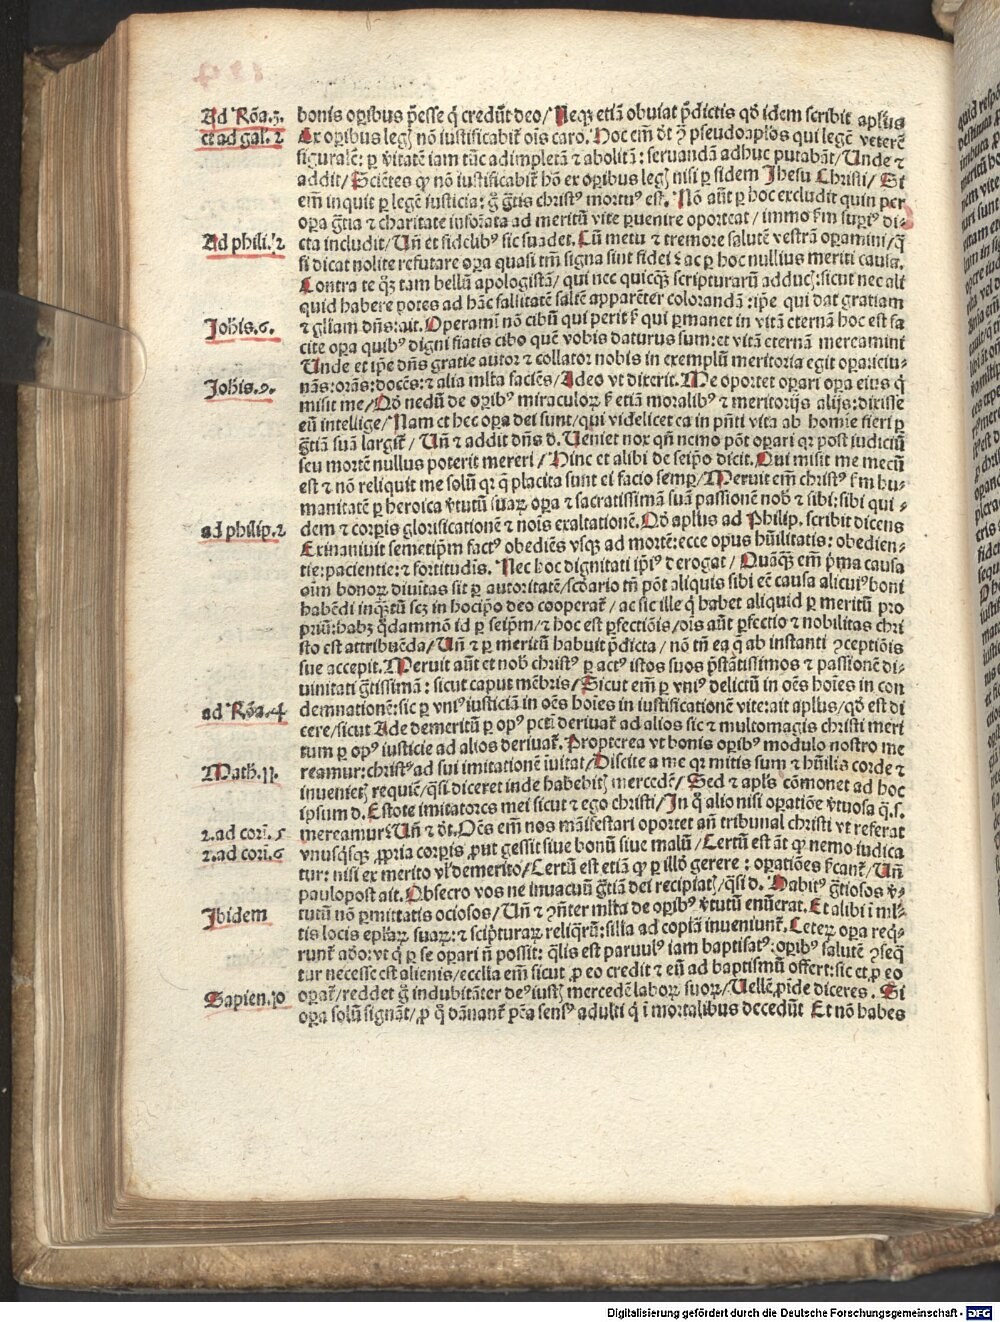 Ad Rōa.3. bonis oꝑibus p̄esse q̇ credūt deo/ Neqꝫ etiā obuiat p̄dictis qđ idem scribit aplūs
et ad gal. 2 Ex oꝑibus legꝭ nō iustificabit̄ ois caro. Hoc em̄ dt ꝯ pseudoaplōs qui legē veterē
figuralē: ꝑ v̄itatē iam tūc adimpletā ⁊ abolitā: seruandā adhuc putabāt/ Unde ⁊
addit/ Sciētes ꝙ nō iustificabit̄ hō ex oꝑibus legꝭ nisi ꝑ fidem Jhesu Christi/ Si
em̄ inquit ꝑ legē iusticia: g̊ gratis christꝰ mortuꝰ est. Nō aūt ꝑ hoc excludit quin per
oꝑa gr̄tia ⁊ charitate infoꝛata ad meritū vite ꝑuenire opoꝛteat/ immo fm suꝑiꝰ di⸗
Ad phili. 2 cta includit/ Uñ et fidelibꝰ sic suadet. Cū metu ⁊ tremoꝛe salutē vestrā oꝑamini/ q̄
si dicat nolite refutare oꝑa quasi tm̄ signa sint fidei ⁊ ac ꝑ hoc nullius meriti causa.
Contra te qꝫ tam bellū apologistā/ qui nec quicqꝫ scripturarū adducꝭ: sicut nec ali
quid habere potes ad hāc fallitatē saltē apparēter coloꝛandā: ip̄e qui dat gratiam
Johis. 6. ⁊ gl̄iam dn̄s: ait. Oꝑamini nō cibū qui perit sꝫ qui ꝑmanet in vitā eternā hoc est fa
cite oꝑa quibꝰ digni fiatis cibo quē vobis daturus sum: et vitā eternā mercamini
Unde et ip̄e dn̄s gratie autoꝛ ⁊ collatoꝛ nobis in exemplū meritoꝛia egit oꝑa: ieiu⸗
Johis. 9. nās: oꝛās: docēs: ⁊ alia ml̄ta faciēs/ Adeo vt dixerit. Me opoꝛtet oꝑari oꝑa eius q̇
misit me/ Qđ nedū de oꝑibꝰ miraculoꝝ sꝫ etiā moꝛalibꝰ ⁊ meritoꝛijs alijs: dixisse
eū intellige/ Nam et hec oꝑa dei sunt/ qui videlicet ea in pn̄ti vita ab hoīe fieri ꝑ
gr̄tiā suā largit̄/ Uñ ⁊ addit dn̄s d. Ueniet nox qn̄ nemo pōt oꝑari qꝛ post iudiciū
seu moꝛtē nullus poterit mereri/ Hinc et alibi de seip̄o dicit. Qui misit me mecū
est ⁊ nō reliquit me solū qꝛ q̄ placita sunt ei facio semꝑ/ Meruit em̄ christꝰ fm hu⸗
manitatē ꝑ heroica v̄tutū suaꝝ oꝑa ⁊ sacratissimā suā passionē nob̄ ⁊ sibi: sibi qui⸗
ad philip. 2 dem ⁊ coꝛpis gloꝛificationē ⁊ nois exaltationē. Qđ aplūs ad Philip. scribit dicens
Exinaniuit semetip̄m factꝰ obediēs vsqꝫ ad moꝛtē: ecce opus hūilitatis: obedien⸗
tie: pacientie: ⁊ foꝛtitudīs. Nec hoc dignitati ip̄iꝰ derogat/ Quāqꝫ em̄ p̄ma causa
oīm bonoꝝ diuītas sit ꝑ autoꝛitatē/ scđario tn̄ pōt aliquis sibi eē causa alicuiꝰ boni
habēdi inqꝫtū scꝫ in hoc ip̄o deo cooperat̄/ ac sic ille q̇ habet aliquid ꝑ meritū pro
priū: habꝫ q̇dammō id ꝑ seip̄m/ ⁊ hoc est ꝑfectiōis/ ois aūt ꝑfectio ⁊ nobilitas chri
sto est attribuēda/ Uñ ⁊ ꝑ meritū habuit p̄dicta/ nō tn̄ ea q̄ ab instanti ꝯceptiōis
sue accepit. Meruit aūt et nob̄ christꝰ ꝑ actꝰ istos suos p̄stātissimos ⁊ passionē di⸗
uinitati gr̄tissimā: sicut caput mēbris/ Sicut em̄ ꝑ vniꝰ delictū in oēs hoīes in con
ad Rōa. 4 demnationē: sic ꝑ vniꝰ iusticiā in oēs hoīes in iustificationē vite: ait aplūs/ qđ est di
cere/ sicut Ade demeritū ꝑ opꝰ pctī deriuat̄ ad alios sic ⁊ multomagis christi meri
tum ꝑ opꝰ iusticie ad alios deriuat̄. Propterea vt bonis oꝑibꝰ modulo nostro me
Math. 11. reamur: christꝰ ad sui imitationē iuitat/ Discite a me qꝛ mitis sum ⁊ hūilis coꝛde ⁊
inuenietꝭ requiē/ q̄si diceret inde habebitꝭ mercedē/ Sed ⁊ apl̄s cōmonet ad hoc
ipsum d. Estote imitatoꝛes mei sicut ⁊ ego christi/ In q̊ alio nisi oꝑatiōe v̄tuosa q.s.
2. ad coꝛi. 5 mereamur? Uñ ⁊ dt. Oēs em̄ nos māifestari opoꝛtet an̄ tribunal christi vt referat
2. ad coꝛi. 6 vnusq̇sqꝫ ꝓpria coꝛpis ꝓut gessit siue bonū siue malū/ Certū est āt ꝙ nemo iudica
tur: nisi ex merito vl̄ demerito/ Certū est etiā ꝙ ꝑ illđ gerere: oꝑatiōes sc̄ant̄/ Uñ
paulopost ait. Obsecro vos ne in vacuū gr̄tiā dei recipiatꝭ/ q̄si d. Habitꝰ gr̄tiosos v̄⸗
Ibidem tutū nō ꝑmittatis ociosos/ Uñ ⁊ ꝯn̄ter ml̄ta de oꝑibꝰ v̄tutū enūerat. Et alibi ī mil⸗
tis locis epl̄aꝝ suaꝝ: ⁊ scripturaꝝ reliq̄rū: sil̄ia ad copiā inueniunt̄. Ceteꝝ oꝑa req̇⸗
runt̄ adeo: vt q̇ ꝑ se oꝑari n̄ possit: q̄lis est paruulꝰ iam baptisatꝰ: oꝑibꝰ salutē ꝯseq̄
tur necesse est alienis/ ecclīa em̄ sicut ꝓ eo credit ⁊ eū ad baptismū offert: sic et ꝓ eo
Sapien. 10 oꝑat̄/ reddet g̊ indubitāter deꝰ iustꝭ mercedē laboꝝ suoꝝ/ Uellē ꝓīde diceres. Si
oꝑa solū signāt/ ꝓ q̊ dānant̄ pēa sensꝰ adulti q̇ ī moꝛtalibus decedūt Et nō habes
Digitalisierung gefördert durch die Deutsche Forschungsgemeinschaft - DFG